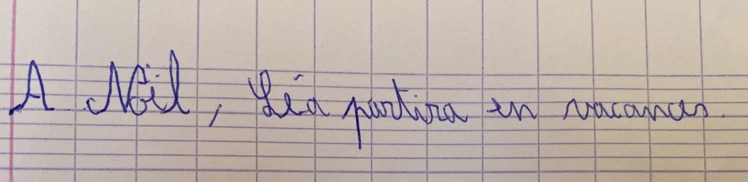 A Noël, Léa partira en vacances.